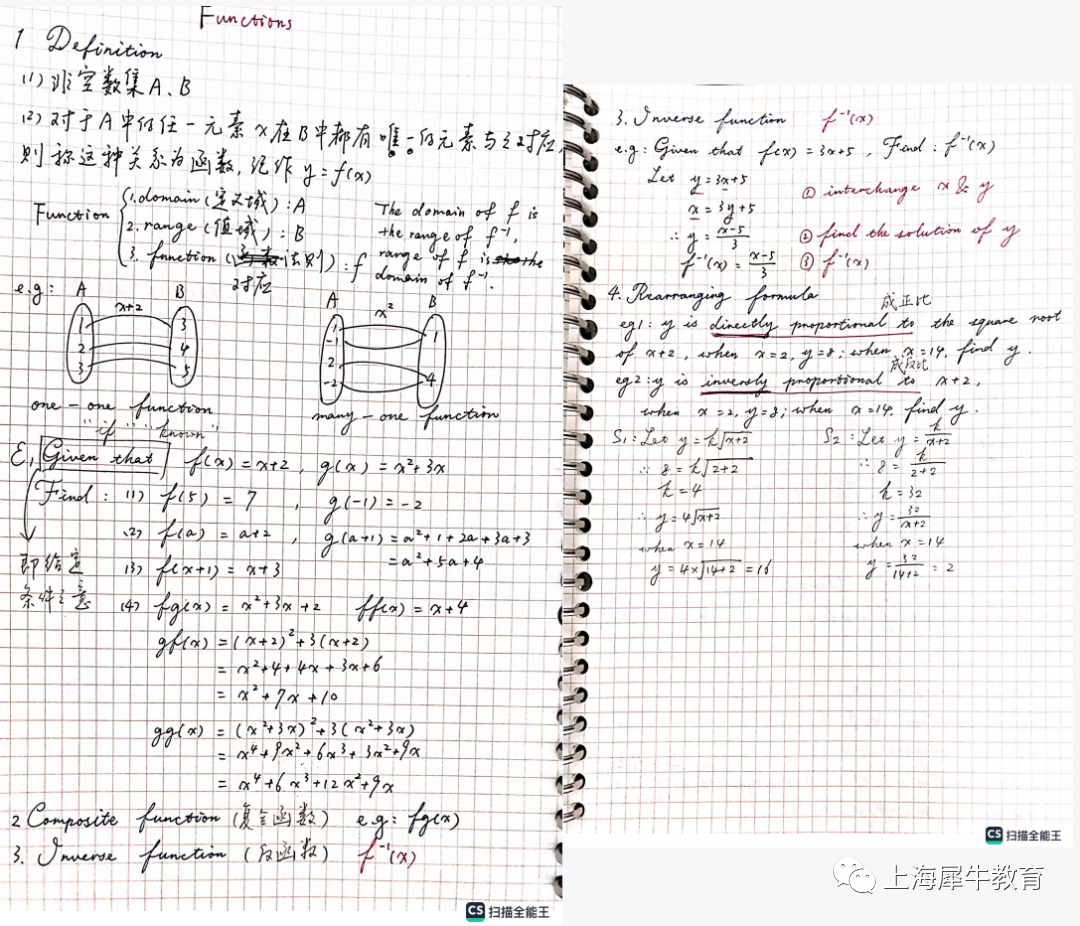 Functions
1 Definition
(1) 非空数集A、B
(2) 对于A中的任一元素x在B中都有唯一的元素与之对应,
则称这种关系为函数, 记作 y=f(x)
Function
1. domain (定义域) : A
2. range (值域) : B
3. function (对应法则) : f
The domain of f is
the range of f⁻¹,
range of f is
domain of f⁻¹.
e.g: A B
x+2
1 3
2 4
3 5
one-one function
A B
x²
1
-1 1
2
-2 4
many-one function
"if" "known"
E, Given that f(x)=x+2, g(x)=x²+3x
Find: (1) f(5)=7, g(-1)=-2
(2) f(a)=a+2, g(a+1)=a²+1+2a+3a+3
=a²+5a+4
即给定
条件之意
(3) f(x+1)=x+3
(4) fg(x)=x²+3x+2 ff(x)=x+4
gf(x)=(x+2)²+3(x+2)
=x²+4+4x+3x+6
=x²+7x+10
gg(x)=(x²+3x)²+3(x²+3x)
=x⁴+9x²+6x³+3x²+9x
=x⁴+6x³+12x²+9x
2 Composite function (复合函数) e.g: fg(x)
3. Inverse function (反函数) f⁻¹(x)
CS 扫描全能王
3. Inverse function f⁻¹(x)
e.g: Given that f(x)=3x+5, Find: f⁻¹(x)
Let y=3x+5
x=3y+5
∴ y=(x-5)/3
f⁻¹(x)=(x-5)/3
① interchange x & y
② find the solution of y
③ f⁻¹(x)
4. Rearranging formula
成正比
eg1: y is directly proportional to the square root
of x+2, when x=2, y=8; when x=14. find y.
成反比
eg2: y is inversly proportional to x+2,
when x=2, y=8; when x=14. find y.
S₁: Let y=k√(x+2)
∴ 8=k√(2+2)
k=4
∴ y=4√(x+2)
when x=14
y=4×√(14+2)=16
S₂: Let y=k/(x+2)
∴ 8=k/(2+2)
k=32
∴ y=32/(x+2)
when x=14
y=32/(14+2)=2
CS 扫描全能王
上海犀牛教育